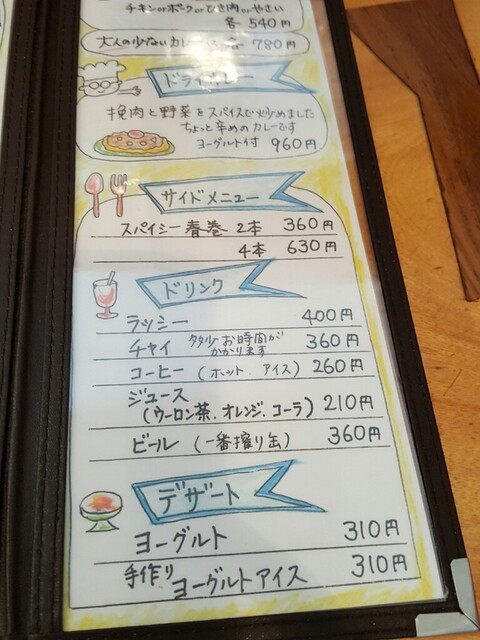 チキン or ポーク or ひき肉 or やさい
各 540円
大人の少ないカレー 各 780円
ドライカレー
挽肉と野菜をスパイスで炒めました
ちょっと辛めのカレーです
ヨーグルト付 960円
サイドメニュー
スパイシー春巻 2本 360円
4本 630円
ドリンク
ラッシー 400円
チャイ 多少お時間が
かかります 360円
コーヒー (ホット.アイス) 260円
ジュース
(ウーロン茶.オレンジ.コーラ) 210円
ビール (一番搾り缶) 360円
デザート
ヨーグルト 310円
手作り
ヨーグルトアイス 310円